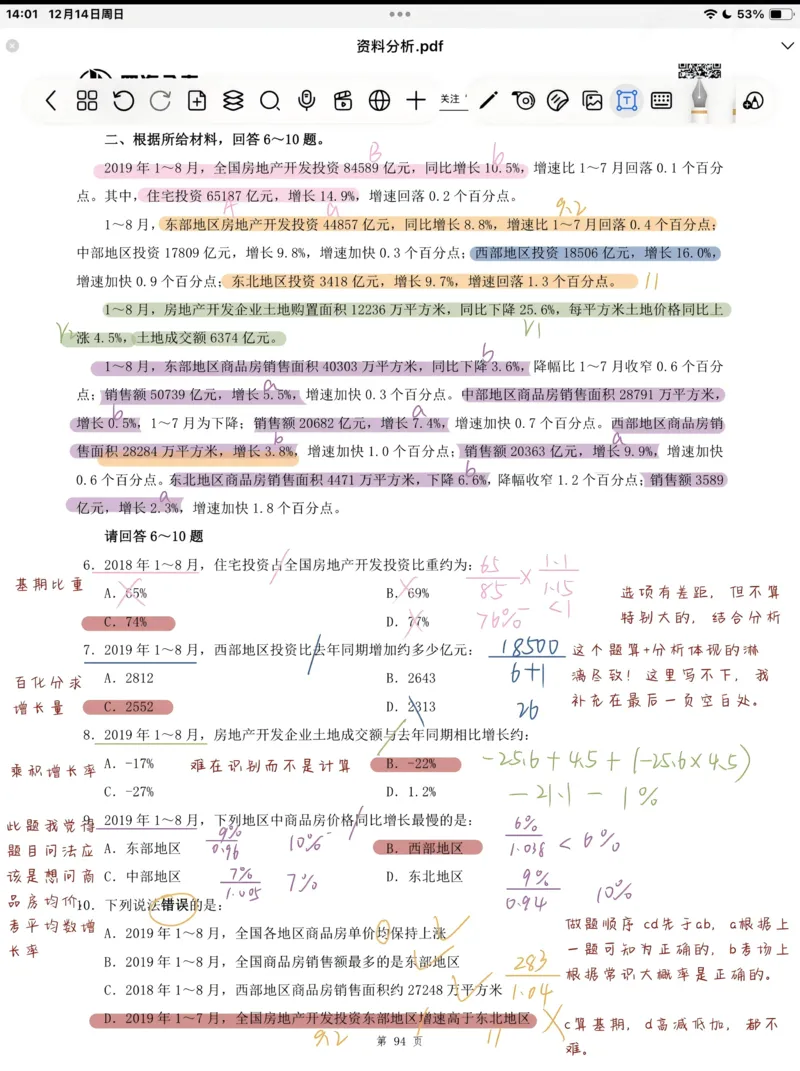 14:01 12月14日周日
53%
资料分析.pdf
关注
二、根据所给材料，回答 6～10 题。
2019 年 1～8 月，全国房地产开发投资 84589 亿元，同比增长 10.5%，增速比 1～7 月回落 0.1 个百分
点。其中，住宅投资 65187 亿元，增长 14.9%，增速回落 0.2 个百分点。
B
b
A
a
9.2
1～8 月，东部地区房地产开发投资 44857 亿元，同比增长 8.8%，增速比 1～7 月回落 0.4 个百分点；
中部地区投资 17809 亿元，增长 9.8%，增速加快 0.3 个百分点；西部地区投资 18506 亿元，增长 16.0%，
增速加快 0.9 个百分点；东北地区投资 3418 亿元，增长 9.7%，增速回落 1.3 个百分点。
11
1～8 月，房地产开发企业土地购置面积 12236 万平方米，同比下降 25.6%，每平方米土地价格同比上
涨 4.5%，土地成交额 6374 亿元。
r2
r1
1～8 月，东部地区商品房销售面积 40303 万平方米，同比下降 3.6%，降幅比 1～7 月收窄 0.6 个百分
点；销售额 50739 亿元，增长 5.5%，增速加快 0.3 个百分点。中部地区商品房销售面积 28791 万平方米，
增长 0.5%，1～7 月为下降；销售额 20682 亿元，增长 7.4%，增速加快 0.7 个百分点。西部地区商品房销
售面积 28284 万平方米，增长 3.8%，增速加快 1.0 个百分点；销售额 20363 亿元，增长 9.9%，增速加快
0.6 个百分点。东北地区商品房销售面积 4471 万平方米，下降 6.6%，降幅收窄 1.2 个百分点；销售额 3589
亿元，增长 2.3%，增速加快 1.8 个百分点。
b
a
b
a
b
a
b
a
请回答 6～10 题
6．2018 年 1～8 月，住宅投资占全国房地产开发投资比重约为：
基期比重
A．65%
B．69%
C．74%
D．77%
65
85
×
1.1
1.15
76%
<1
选项有差距，但不算
特别大的，结合分析
7．2019 年 1～8 月，西部地区投资比去年同期增加约多少亿元：
百化分求
增长量
A．2812
B．2643
C．2552
D．2313
18500
6+1
26
这个题算+分析体现的淋
漓尽致！这里写不下，我
补充在最后一页空白处。
8．2019 年 1～8 月，房地产开发企业土地成交额与去年同期相比增长约：
乘积增长率
A．-17%
难在识别而不是计算
B．-22%
C．-27%
D．1.2%
-25.6+4.5+(-25.6×4.5)
-21.1-1%
9．2019 年 1～8 月，下列地区中商品房价格同比增长最慢的是：
此题我觉得
题目问法应
该是想问商
品房均价，
考平均数增
长率
A．东部地区
9%
0.96
10%-
B．西部地区
6%
1.038
<6%
C．中部地区
7%
1.005
7%
D．东北地区
9%
0.94
10%
10．下列说法错误的是：
A．2019 年 1～8 月，全国各地区商品房单价均保持上涨
B．2019 年 1～8 月，全国商品房销售额最多的是东部地区
C．2018 年 1～8 月，西部地区商品房销售面积约 27248 万平方米
283
1.04
D．2019 年 1～7 月，全国房地产开发投资东部地区增速高于东北地区
9.2
11
做题顺序 cd先于ab，a根据上
一题可知为正确的，b考场上
根据常识大概率是正确的。
c算基期，d高减低加，都不
难。
第 94 页